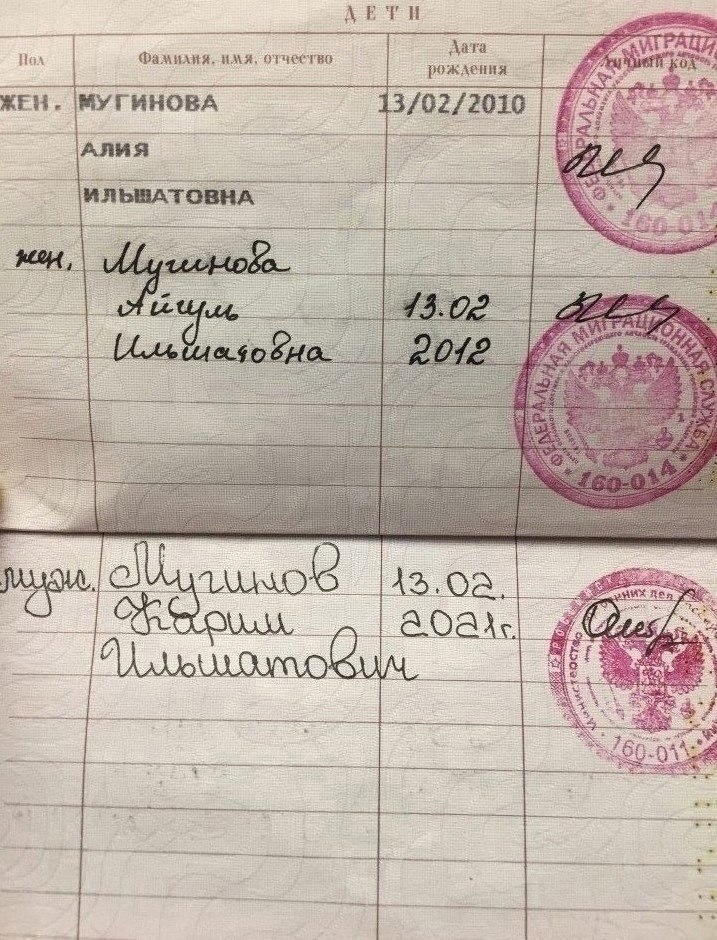 ДЕТИ
Пол Фамилия, имя, отчество Дата рождения Личный код
ЖЕН. МУГИНОВА 13/02/2010
АЛИЯ
ИЛЬШАТОВНА
ФЕДЕРАЛЬНАЯ МИГРАЦИ
160-014
жен. Мугинова
Айгуль 13.02
Ильшатовна 2012
ФЕДЕРАЛЬНАЯ МИГРАЦИОННАЯ СЛУЖБА
160-014
муж. Мугинов 13.02.
Карим 2021г.
Ильшатович
Министерство внутренних дел
160-011